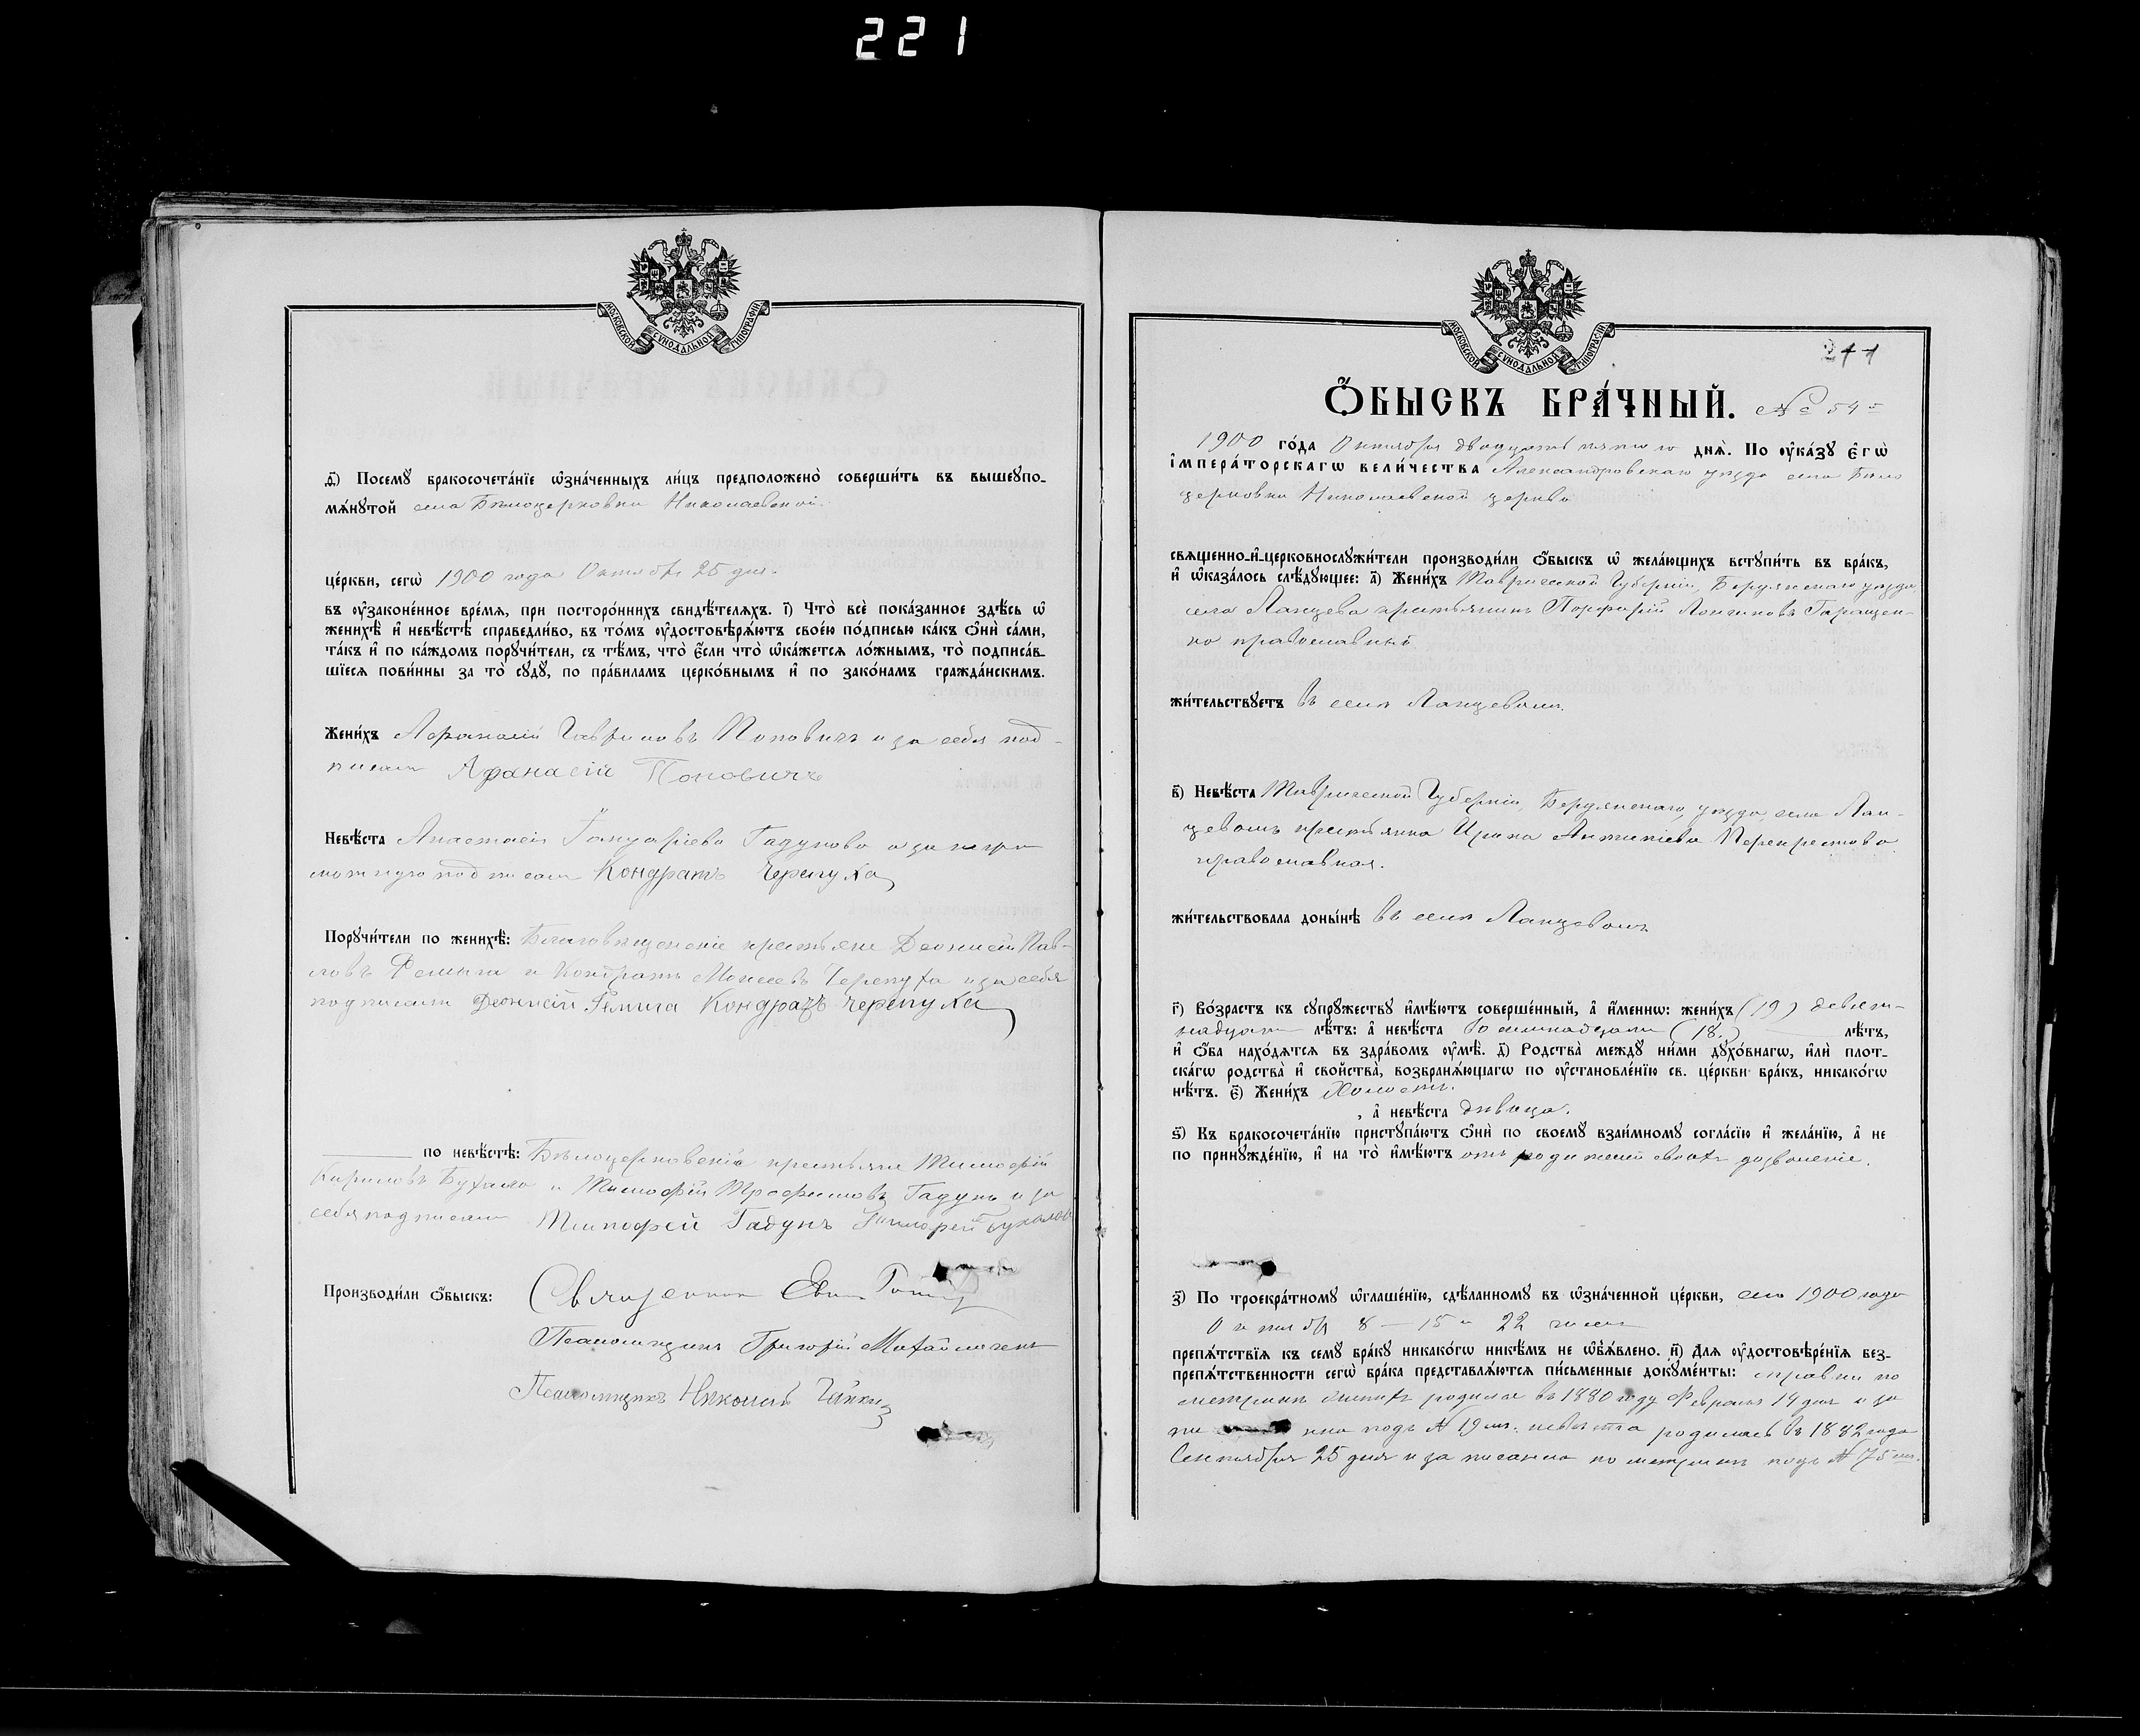 221
МОСКОВСКОЙ СѴНОДАЛЬНОЙ ТИПОГРАФІИ
Посемꙋ бракосочета́нїе ѡ҆зна́ченныхъ ли́цъ предположено̀ соверши́ть въ вышеꙋпо-
мѧ́нꙋтой села Бѣлоцерковки Николаевской
це́ркви, сегѡ̀ 1900 года Октября 25 дня.
въ ᲂу҆зако́ненное вре́мѧ, при посторо́ннихъ свидѣ́телѧхъ. і҃) Что̀ всѐ пока́занное здѣ́сь ѡ҆
женихѣ̀ и҆ невѣ́стѣ справедли́во, въ то́мъ ᲂу҆достовѣрѧ́ютъ свое́ю по́дписью ка́къ ѻ҆нѝ са́ми,
та́къ и҆ по ка́ждомъ порꙋчи́тели, съ тѣ́мъ, что̀ є҆́сли что̀ ѡ҆ка́жетсѧ ло́жнымъ, то̀ подписа́в-
шїесѧ пови́нны за то̀ сꙋдꙋ̀, по пра́виламъ церко́внымъ и҆ по зако́намъ гражда́нскимъ.
Жени́хъ Афанасій Гавриловъ Поповичъ и за себя под-
писалъ Афанасій Поповичъ
Невѣ́ста Анастасія Гадунова а за негра
мотную подписалъ Кондратъ Черепуха
Порꙋчи́тели по женихѣ̀: Благовѣщенскіе крестьяне Деонисій Пав-
ловъ и Кондратъ Моисеевъ Черепуха и за себя
подписали Деонисій Кондратъ Черепуха
по невѣ́стѣ: Бѣлоцерковскіе крестьяне Тимофій
Кириловъ и Тимофій Трофимовъ Гадунъ и за
себя подписали Тимофей Гадунъ Тимофей
Производи́ли ѻ҆́быскъ: Священникъ
Псаломщикъ Григорій Михайличенко
Псаломщикъ Николай
МОСКОВСКОЙ СѴНОДАЛЬНОЙ ТИПОГРАФІИ
211
Ѻ҆́БЫСКЪ БРА́ЧНЫЙ. № 54
1900 го́да Октября двадцать пятаго днѧ̀. По ᲂу҆ка́зꙋ Є҆гѡ̀
І҆мпера́торскагѡ вели́чества Александровскаго уѣзда села Бѣло
церковки Николаевской церкви
свѧщенно-и҆-церковнослꙋжи́тели производи́ли ѻ҆́быскъ ѡ҆ жела́ющихъ встꙋпи́ть въ бра́къ,
и҆ ѡ҆каза́лось слѣ́дꙋющее: а҃) Жени́хъ Таврической Губерніи, Бердянскаго уѣзда
села Ланцева крестьянинъ Порфирій Гаращен-
ко православный
жи́тельствꙋетъ въ селѣ Ланцевомъ.
в҃) Невѣ́ста Таврической Губерніи, Бердянскаго уѣзда, села Лан-
цевомъ крестьянка Ирина Антипіева Перекрестова
православная.
жи́тельствовала доны́нѣ въ селѣ Ланцевомъ
г҃) Во́зрастъ къ сꙋпрꙋ́жествꙋ и҆мѣ́ютъ соверше́нный, а҆ и҆́меннѡ: жени́хъ (19) девят-
надцати лѣ́тъ: а҆ невѣ́ста восемнадцати (18.) лѣ́тъ,
и҆ ѻ҆́ба нахо́дѧтсѧ въ здра́вомъ ᲂу҆мѣ̀. д҃) Родства̀ междꙋ̀ ни́ми дꙋхо́внагѡ, и҆лѝ плот-
ска́гѡ родства̀ и҆ сво́йства, возбранѧ́ющагѡ по ᲂу҆становле́нїю св. це́ркви бра́къ, никако́гѡ
нѣ́тъ. є҃) Жени́хъ Холостъ.
, а҆ невѣ́ста дѣвица.
ѕ҃) Къ бракосочета́нїю пристꙋпа́ютъ ѻ҆нѝ по своемꙋ̀ взаи́мномꙋ согла́сїю и҆ жела́нїю, а҆ не
по принꙋжде́нїю, и҆ на то̀ и҆мѣ́ютъ отъ родителей своихъ дозволеніе.
з҃) По троекра́тномꙋ ѡ҆глаше́нїю, сдѣ́ланномꙋ въ ѡ҆зна́ченной це́ркви, сего 1900 года
Октября 8 – 15 и 22 числа
препѧ́тствїѧ къ семꙋ̀ бра́кꙋ никако́гѡ никѣ́мъ не ѡ҆б̾ѧ́влено. и҃) Для ᲂу҆достовѣре́нїѧ без-
препѧ́тственности сегѡ̀ бра́ка представлѧ́ютсѧ пи́сьменные докꙋме́нты: справки по
метрикѣ женихъ родился въ 1880 году Февраля 14 дня и за
пи но подъ № 19 мъ. невѣста родилась въ 1882 года
Сентября 25 дня и записана по метрикѣ подъ № 75 мъ.